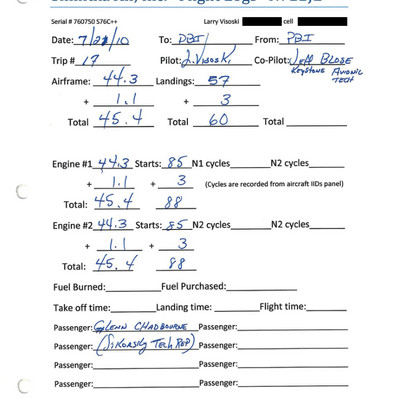 Serial # 760750 S76C++ Larry Visoski cell
Date: 7/22/10 To: PBI From: PBI
Trip # 17 Pilot: L. Visoski Co-Pilot: Jeff Blose
Keystone Avionic Tech
Airframe: 44.3 Landings: 57
+ 1.1 + 3
Total 45.4 Total 60 Total
Engine #1 44.3 Starts: 85 N1 cycles N2 cycles
+ 1.1 + 3 (Cycles are recorded from aircraft IIDs panel)
Total: 45.4 88
Engine #2 44.3 Starts: 85 N2 cycles N2 cycles
+ 1.1 + 3
Total: 45.4 88
Fuel Burned: Fuel Purchased:
Take off time: Landing time: Flight time:
Passenger: Glenn Chadbourne Passenger:
Passenger: (Sikorsky Tech Rep) Passenger:
Passenger: Passenger:
Passenger: Passenger: